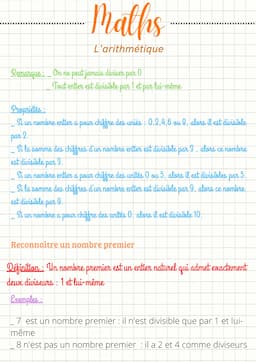 Maths
L'arithmétique
Remarque : _ On ne peut jamais diviser par 0
_ Tout entier est divisible par 1 et par lui-même.
Propriétés :
_ Si un nombre entier a pour chiffre des unités : 0,2,4,6 ou 8, alors il est divisible
par 2.
_ Si la somme des chiffres d'un nombre entier est divisible par 3 , alors ce nombre
est divisible par 3.
_ Si un nombre entier a pour chiffre des unités 0 ou 5, alors il est divisibles par 5.
_ Si la somme des chiffres d'un nombre entier est divisible par 9, alors ce nombre
est divisible par 9.
_ Si un nombre a pour chiffre des unités 0, alors il est divisible 10.
Reconnaître un nombre premier
Définition : Un nombre premier est un entier naturel qui admet exactement
deux diviseurs : 1 et lui-même
Exemples :
_ 7 est un nombre premier : il n'est divisible que par 1 et lui-
même
_ 8 n'est pas un nombre premier : il a 2 et 4 comme diviseurs